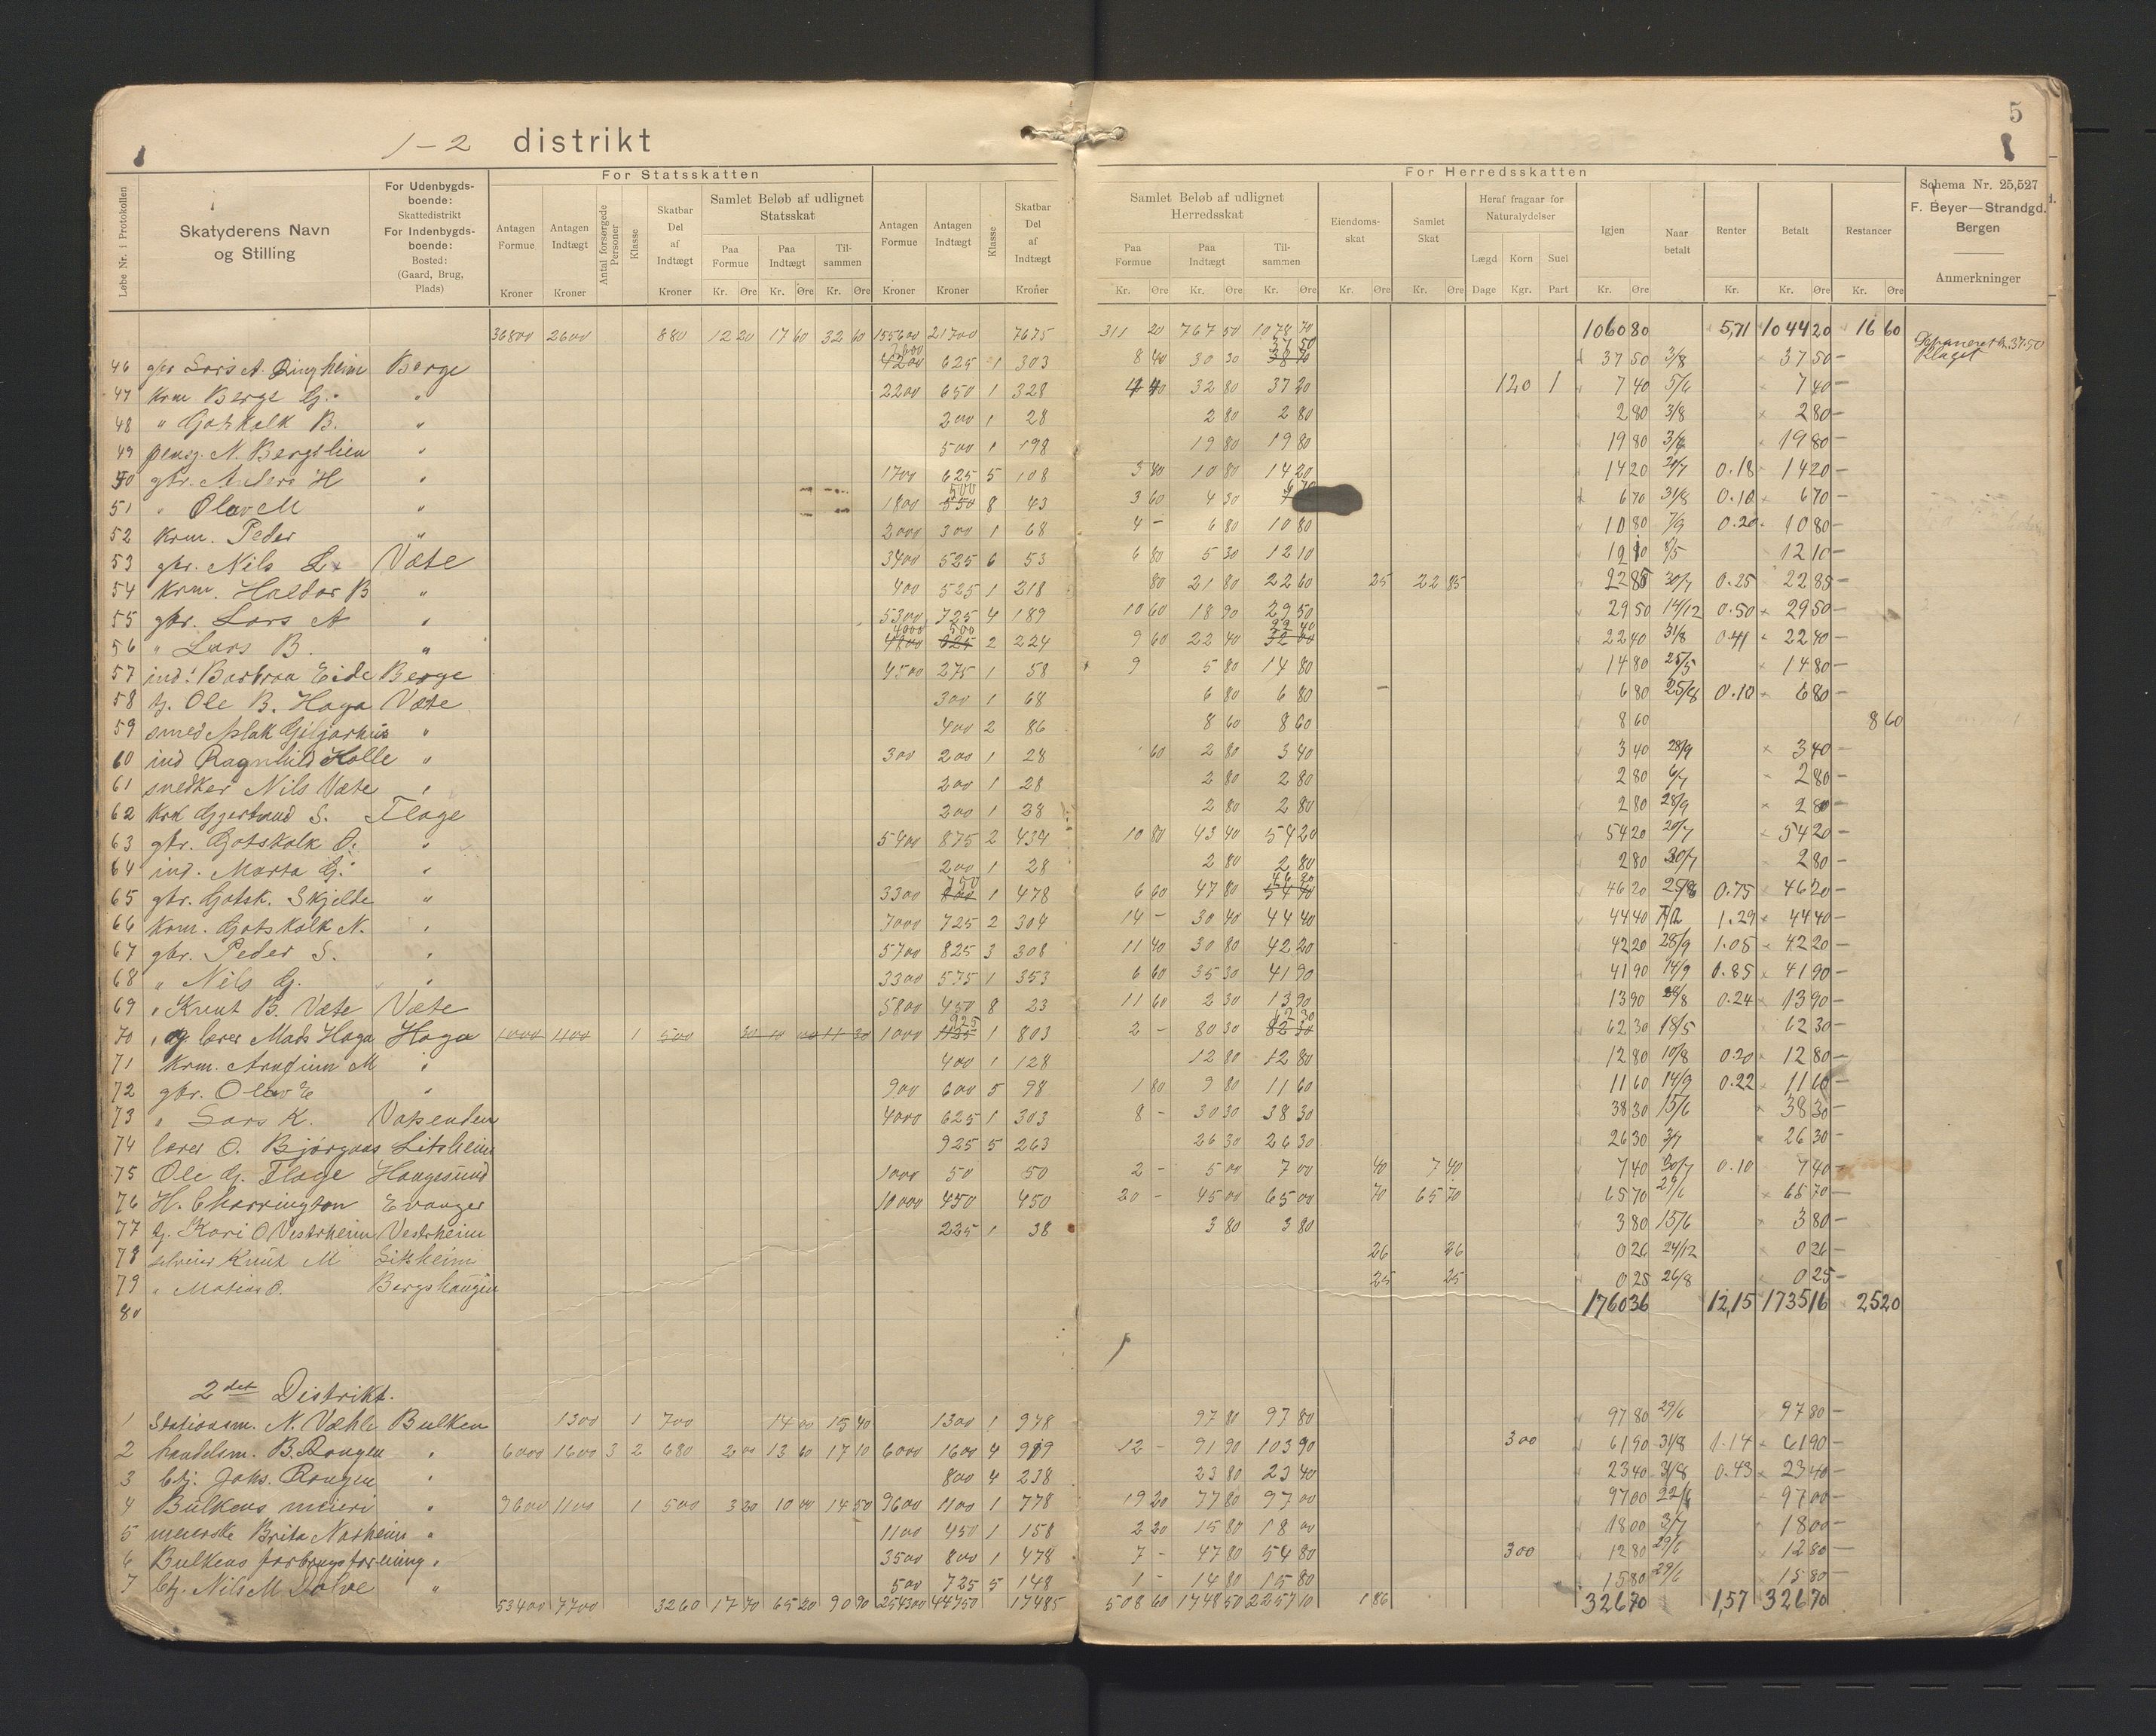 5
1-2 distrikt
For Statsskatten
For Herredsskatten
Løbe Nr. i Protokollen
Skatyderens Navn og Stilling
For Udenbygdsboende: Skattedistrikt For Indenbygdsboende: Bosted: (Gaard, Brug, Plads)
Antagen Formue Kroner
Antagen Indtægt Kroner
Antal forsørgede Personer
Klasse
Skatbar Del af Indtægt Kroner
Samlet Beløb af udlignet Statsskat
Paa Formue Kr. Øre
Paa Indtægt Kr. Øre
Tilsammen Kr. Øre
Antagen Formue Kroner
Antagen Indtægt Kroner
Klasse
Skatbar Del af Indtægt Kroner
Samlet Beløb af udlignet Herredsskat
Paa Formue Kr. Øre
Paa Indtægt Kr. Øre
Tilsammen Kr. Øre
Eiendomsskat Kr. Øre
Samlet Skat Kr. Øre
Heraf fragaar for Naturalydelser
Lægd Dage
Korn Kgr.
Suel Part
Igjen Kr. Øre
Naar betalt
Renter Kr.
Betalt Kr. Øre
Restancer Kr. Øre
Schema Nr. 25,527
F. Beyer—Strandgd.
Bergen
Anmerkninger
36800 2600 880 12 20 17 60 32 60 155600 21700 7675 311 20 767 50 1078 70 1060 80 5,71 1044 20 16 60
46 gbr Lars A. Ringheim Berge 4200 625 1 303 8 40 30 30 37 50 37 50 3/8 37 50 Klaget
47 krm Berge G. " 2200 650 1 328 4 40 32 80 37 20 120 1 7 40 5/6 7 40
48 " Gotskalk B. " 200 1 28 2 80 2 80 2 80 3/8 2 80
49 pensj. N. Bergslien " 500 1 198 19 80 19 80 19 80 19 80
50 gbr. Anders H " 1700 625 5 108 3 40 10 80 14 20 14 20 20/7 0.18 14 20
51 " Olav M " 1800 500 550 8 43 3 60 4 30 6 70 31/8 0.10 6 70
52 krm. Peder " 2000 300 1 68 4 - 6 80 10 80 10 80 7/9 0.20 10 80
53 gbr. Nils L. Væte 3400 525 6 53 6 80 5 30 12 10 12 10
54 krm. Haldor B " 400 525 1 218 80 21 80 22 60 25 22 85 22 85 30/7 0.25 22 85
55 gbr. Lars A " 5300 725 4 189 10 60 18 90 29 50 29 50 14/12 0.50 29 50
56 " Lars B. " 500 2 224 9 60 22 40 22 40 31/8 0.41 22 40
57 ind. Barbraa Eide Berge 4500 275 1 58 9 5 80 14 80 14 80 25/5 14 80
58 tj. Ole B. Haga Væte 300 1 68 6 80 6 80 6 80 25/8 0.10 6 80
59 smed Aslak Giljarhus " 400 2 86 8 60 8 60 8 60 8 60
60 ind Ragnhild Holle " 300 200 1 28 60 2 80 3 40 3 40 28/9 3 40
61 snedker Nils Væte " 200 1 28 2 80 2 80 2 80 6/7 2 80
62 Gjertrud S. Flage 200 1 28 2 80 2 80 2 80 28/9 2 80
63 gbr. Gotskalk O. " 5400 875 2 434 10 80 43 40 54 20 54 20 20/7 54 20
64 ind. Marta G. " 200 1 28 2 80 2 80 2 80 30/7 2 80
65 gbr. Gotsk. Skjelde " 3300 750 1 478 6 60 47 80 46 20 54 40 46 20 25/8 0.75 46 20
66 krm. Gotskalk N. " 7000 725 2 304 14 - 30 40 44 40 44 40 1.29 44 40
67 gbr. Peder S. " 5700 825 3 308 11 40 30 80 42 20 42 20 28/9 1.05 42 20
68 " Nils G. " 3300 575 1 353 6 60 35 30 41 90 41 90 14/9 0.85 41 90
69 " Knut B. Væte Væte 5800 450 8 23 11 60 2 30 13 90 13 90 0.24 13 90
70 lærer Mads Haga Haga 1000 1100 1 500 1000 925 1125 1 803 2 - 80 30 62 30 82 30 62 30 18/5 62 30
71 krm. Arnfinn M " 400 1 128 12 80 12 80 12 80 10/8 0.20 12 80
72 gbr. Olav E " 900 600 5 98 1 80 9 80 11 60 11 60 14/9 0.22 11 60
73 " Lars K. Vatsenden 4000 625 1 303 8 - 30 30 38 30 38 30 15/6 38 30
74 lærer O. Bjørgaas Litsheim 925 5 263 26 30 26 30 26 30 3/7 26 30
75 Ole G. Flage Haugesund 1000 50 50 2 - 5 00 7 00 40 7 40 7 40 30/7 0.10 7 40
76 H. Charrington Evanger 10000 450 450 20 - 45 00 65 00 70 65 70 65 70 29/6 65 70
77 tj. Kari O Vestrheim Vestrheim 225 1 38 3 80 3 80 3 80 15/6 3 80
78 Knut M Litsheim 26 26 0 26 24/12 0 26
79 " Matias O. Bergshaugen 25 25 0 25 26/8 0 25
80 1760 36 12,15 1735 16 25 20
2det Distrikt.
1 Stationsm. N. Væhle Bulken 1300 1 700 14 00 15 40 1300 1 978 97 80 97 80 97 80 29/6 97 80
2 handelsm. B. Rongen " 6000 1600 3 2 680 2 00 13 60 17 10 6000 1600 4 919 12 - 91 90 103 90 300 61 90 31/8 1.14 61 90
3 btj. Johs. Rongen " 800 4 238 23 80 23 40 23 40 31/8 0.43 23 40
4 Bulkens meieri " 9600 1100 1 500 3 20 10 00 14 50 9600 1100 1 778 19 20 77 80 97 00 97 00 22/6 97 00
5 meierske Brita Norheim " 1100 450 1 158 2 20 15 80 18 00 18 00 3/7 18 00
6 Bulkens forbrugsforening " 3500 800 1 478 7 - 47 80 54 80 300 12 80 29/6 12 80
7 btj. Nils M Dolve " 500 725 5 148 1 - 14 80 15 80 15 80 29/6 15 80
53400 7700 3260 17 70 65 20 90 90 254300 44750 17485 508 60 1748 50 2257 10 1 86 326 70 1,57 326 70